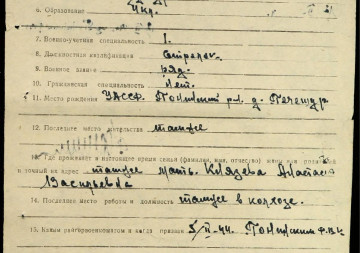 6. Образование
7. Военно-учетная специальность 1.
8. Должностная квалификация Стрелок.
9. Военное звание ряд.
10. Гражданская специальность Нет.
11. Место рождения УАССР. Понинский р-н д.
12. Последнее место жительства там же
13. Где проживает в настоящее время семья (фамилия, имя, отчество) жены или
и точный их адрес там же мать Князева
Васильевна
14. Последнее место работы и должность там же в колхозе.
15. Каким райгорвоенкоматом и когда призван 5/II-44. Понинским